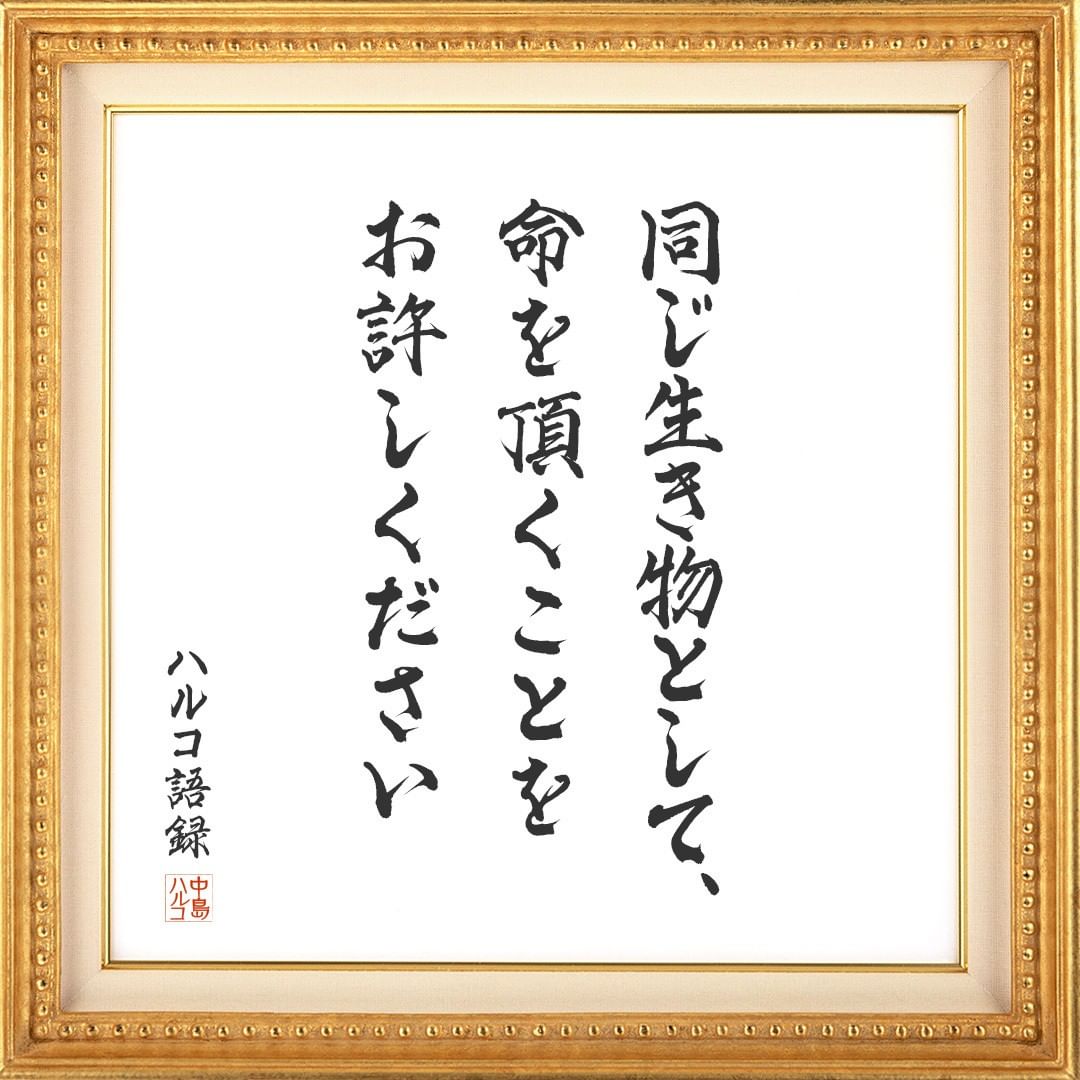 同じ生き物として、
命を頂くことを
お許しください
ハルコ語録
中島
ハルコ